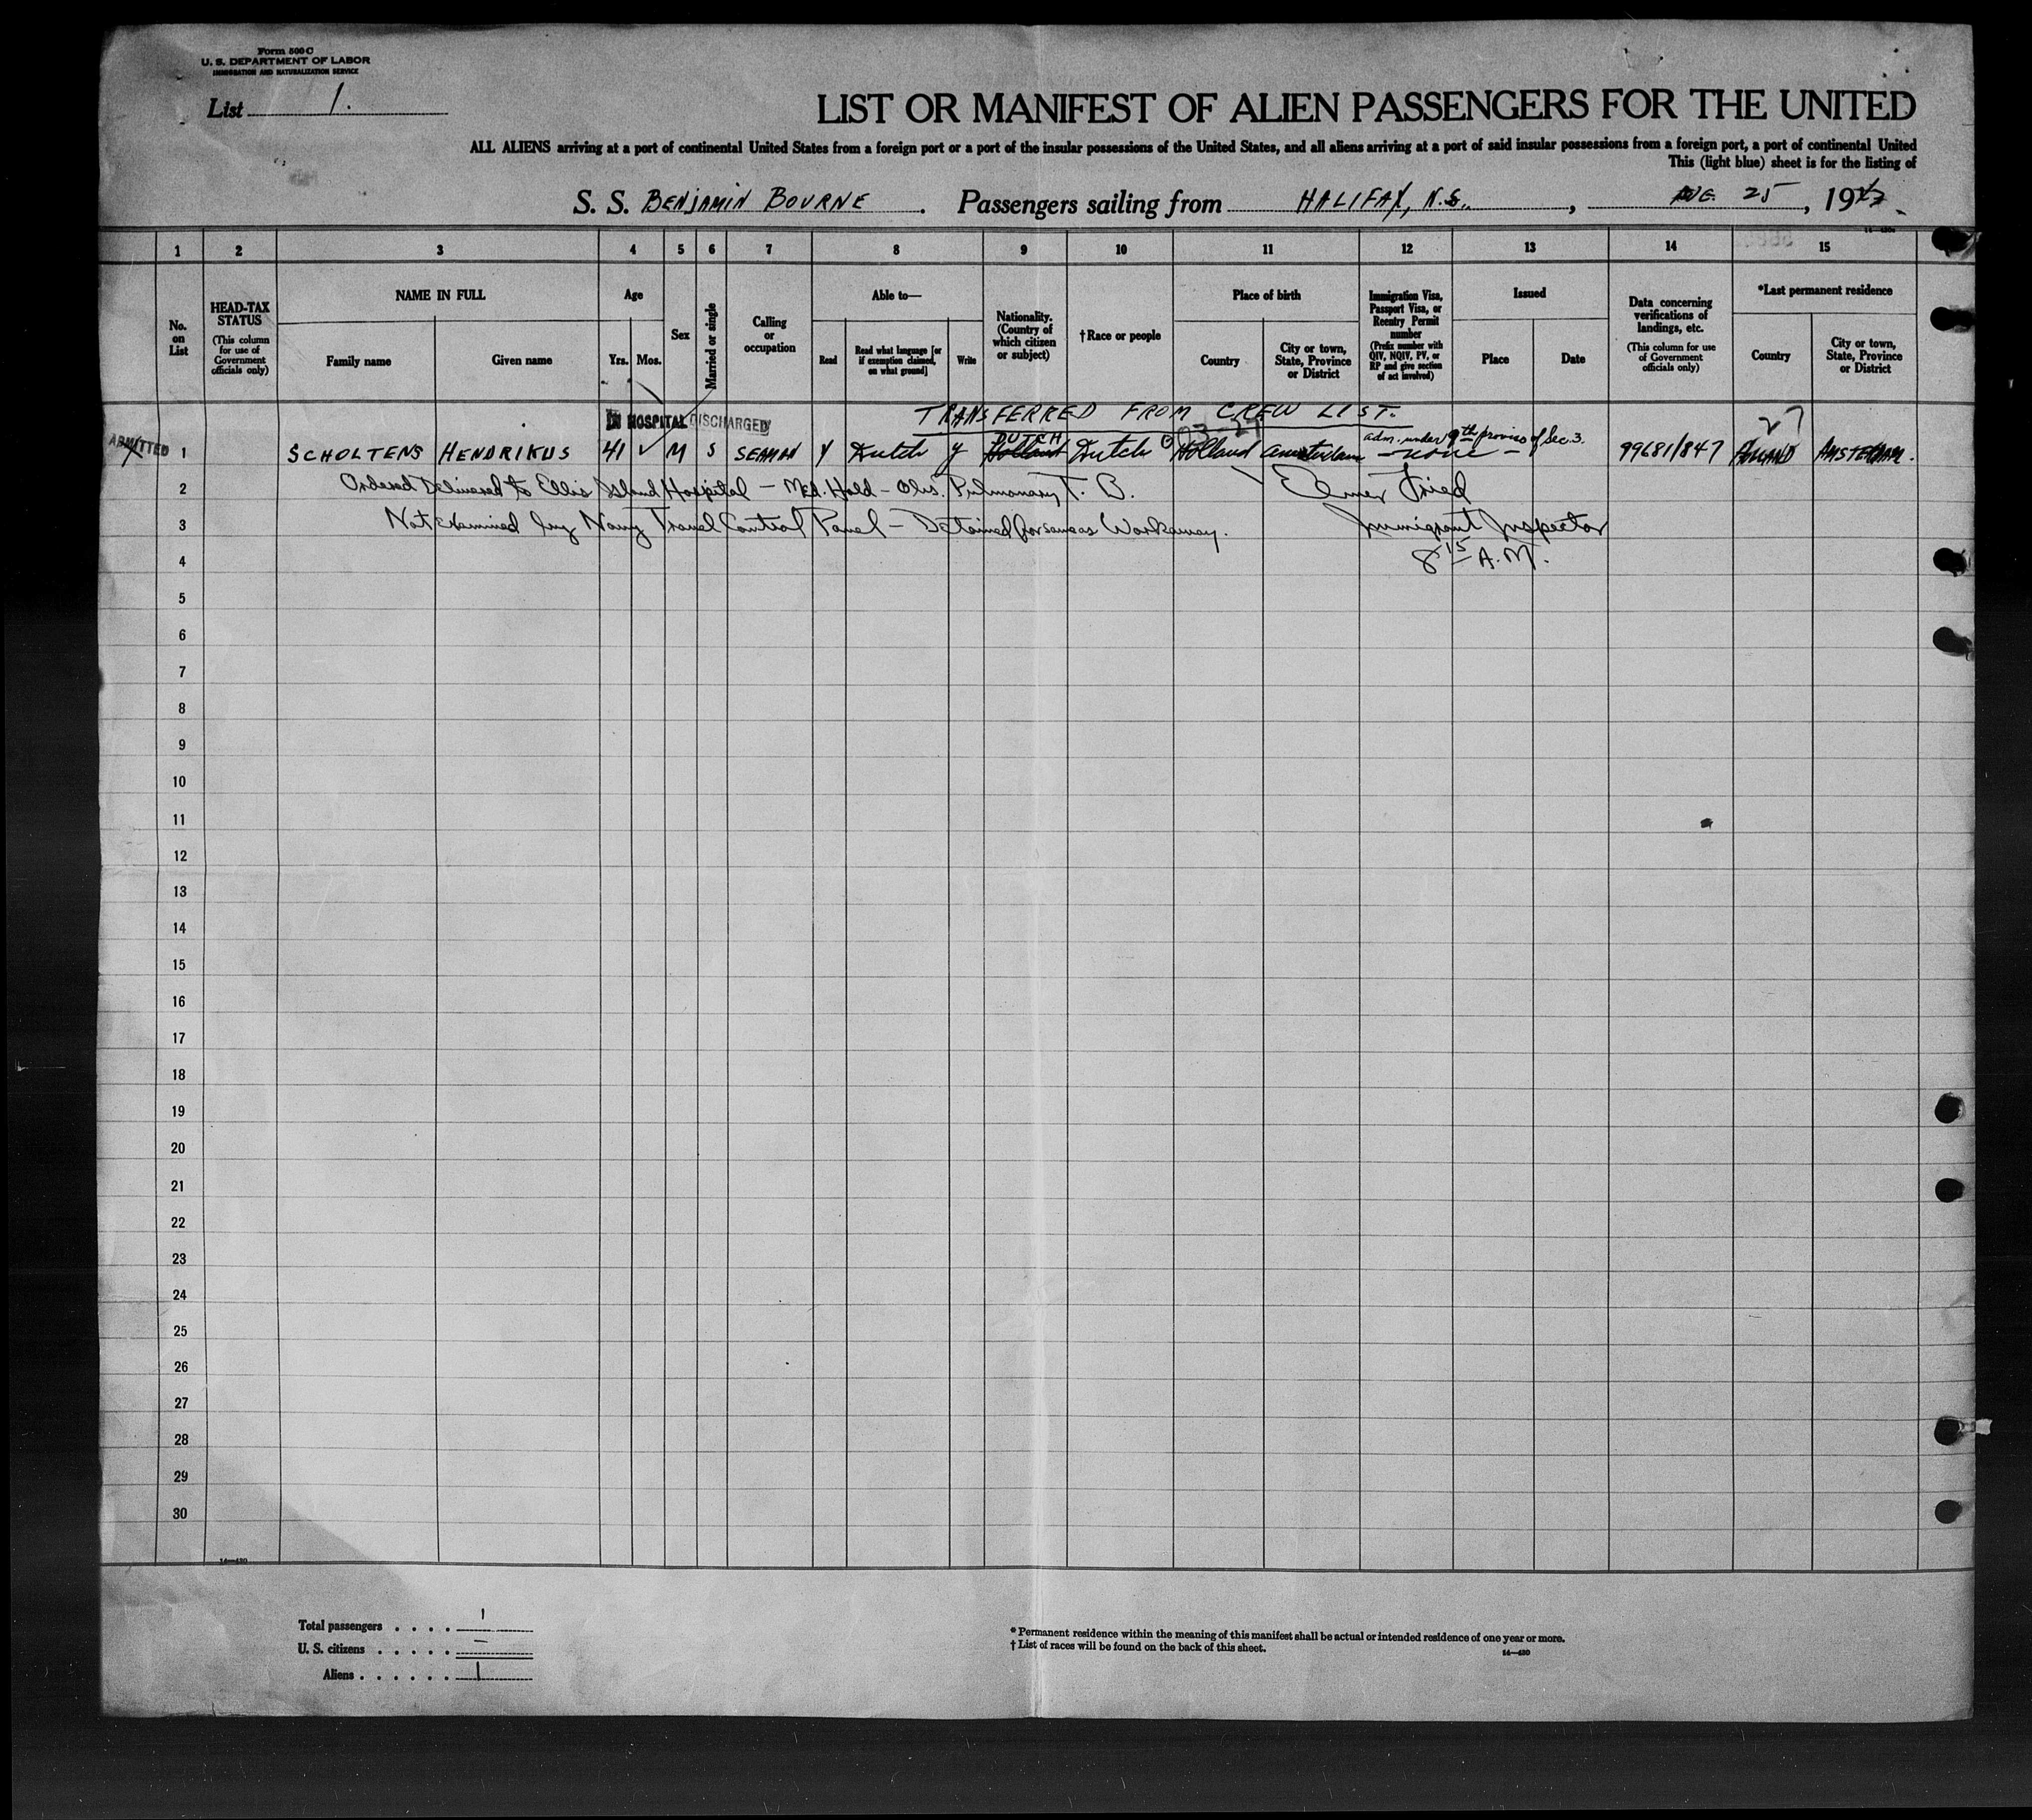 Form 500 C
U. S. DEPARTMENT OF LABOR
IMMIGRATION AND NATURALIZATION SERVICE
List 1.
LIST OR MANIFEST OF ALIEN PASSENGERS FOR THE UNITED
ALL ALIENS arriving at a port of continental United States from a foreign port or a port of the insular possessions of the United States, and all aliens arriving at a port of said insular possessions from a foreign port, a port of continental United
This (light blue) sheet is for the listing of
S. S. BENJAMIN BOURNE . Passengers sailing from HALIFAX, N.S. , 25 , 19
1 2 3 4 5 6 7 8 9 10 11 12 13 14 15
No. on List
HEAD-TAX STATUS (This column for use of Government officials only)
NAME IN FULL
Family name Given name
Age
Yrs. Mos.
Sex
Married or single
Calling or occupation
Able to—
Read Read what language [or if exemption claimed, on what ground] Write
Nationality. (Country of which citizen or subject)
†Race or people
Place of birth
Country City or town, State, Province or District
Immigration Visa, Passport Visa, or Reentry Permit number (Prefix number with QIV, NQIV, PV, or RP and give section of act involved)
Issued
Place Date
Data concerning verifications of landings, etc. (This column for use of Government officials only)
*Last permanent residence
Country City or town, State, Province or District
IN HOSPITAL DISCHARGED TRANSFERRED FROM CREW LIST.
03-27
DUTCH adm. under 9th proviso of Sec. 3.
ADMITTED 1 SCHOLTENS HENDRIKUS 41 M S SEAMAN Y Dutch y Holland Dutch Holland Amsterdam - none - 99681/847 HOLLAND AMSTERDAM.
2 Ordered Delivered to Ellis Island Hospital - Med. Hold - Obs. Pulmonary T. B. Elmer Fried
3 Not Examined by Navy Travel Control Panel - Detained Workaway. Immigrant Inspector
4 8 15 A.M.
5
6
7
8
9
10
11
12
13
14
15
16
17
18
19
20
21
22
23
24
25
26
27
28
29
30
14—430
Total passengers . . . . 1
U. S. citizens . . . . . –
Aliens . . . . . . 1
* Permanent residence within the meaning of this manifest shall be actual or intended residence of one year or more.
† List of races will be found on the back of this sheet.
14—430